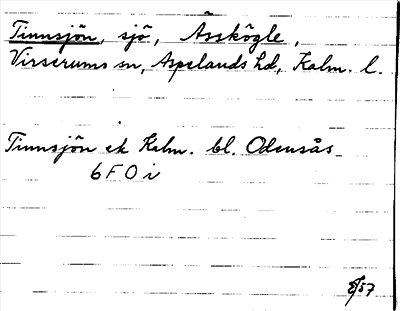 Tinnsjön, sjö, Åsskögle,
Virserums sn, Aspelands hd, Kalm. l.
Tinnsjön ek Kalm. bl. Odensås
6 F 0 i